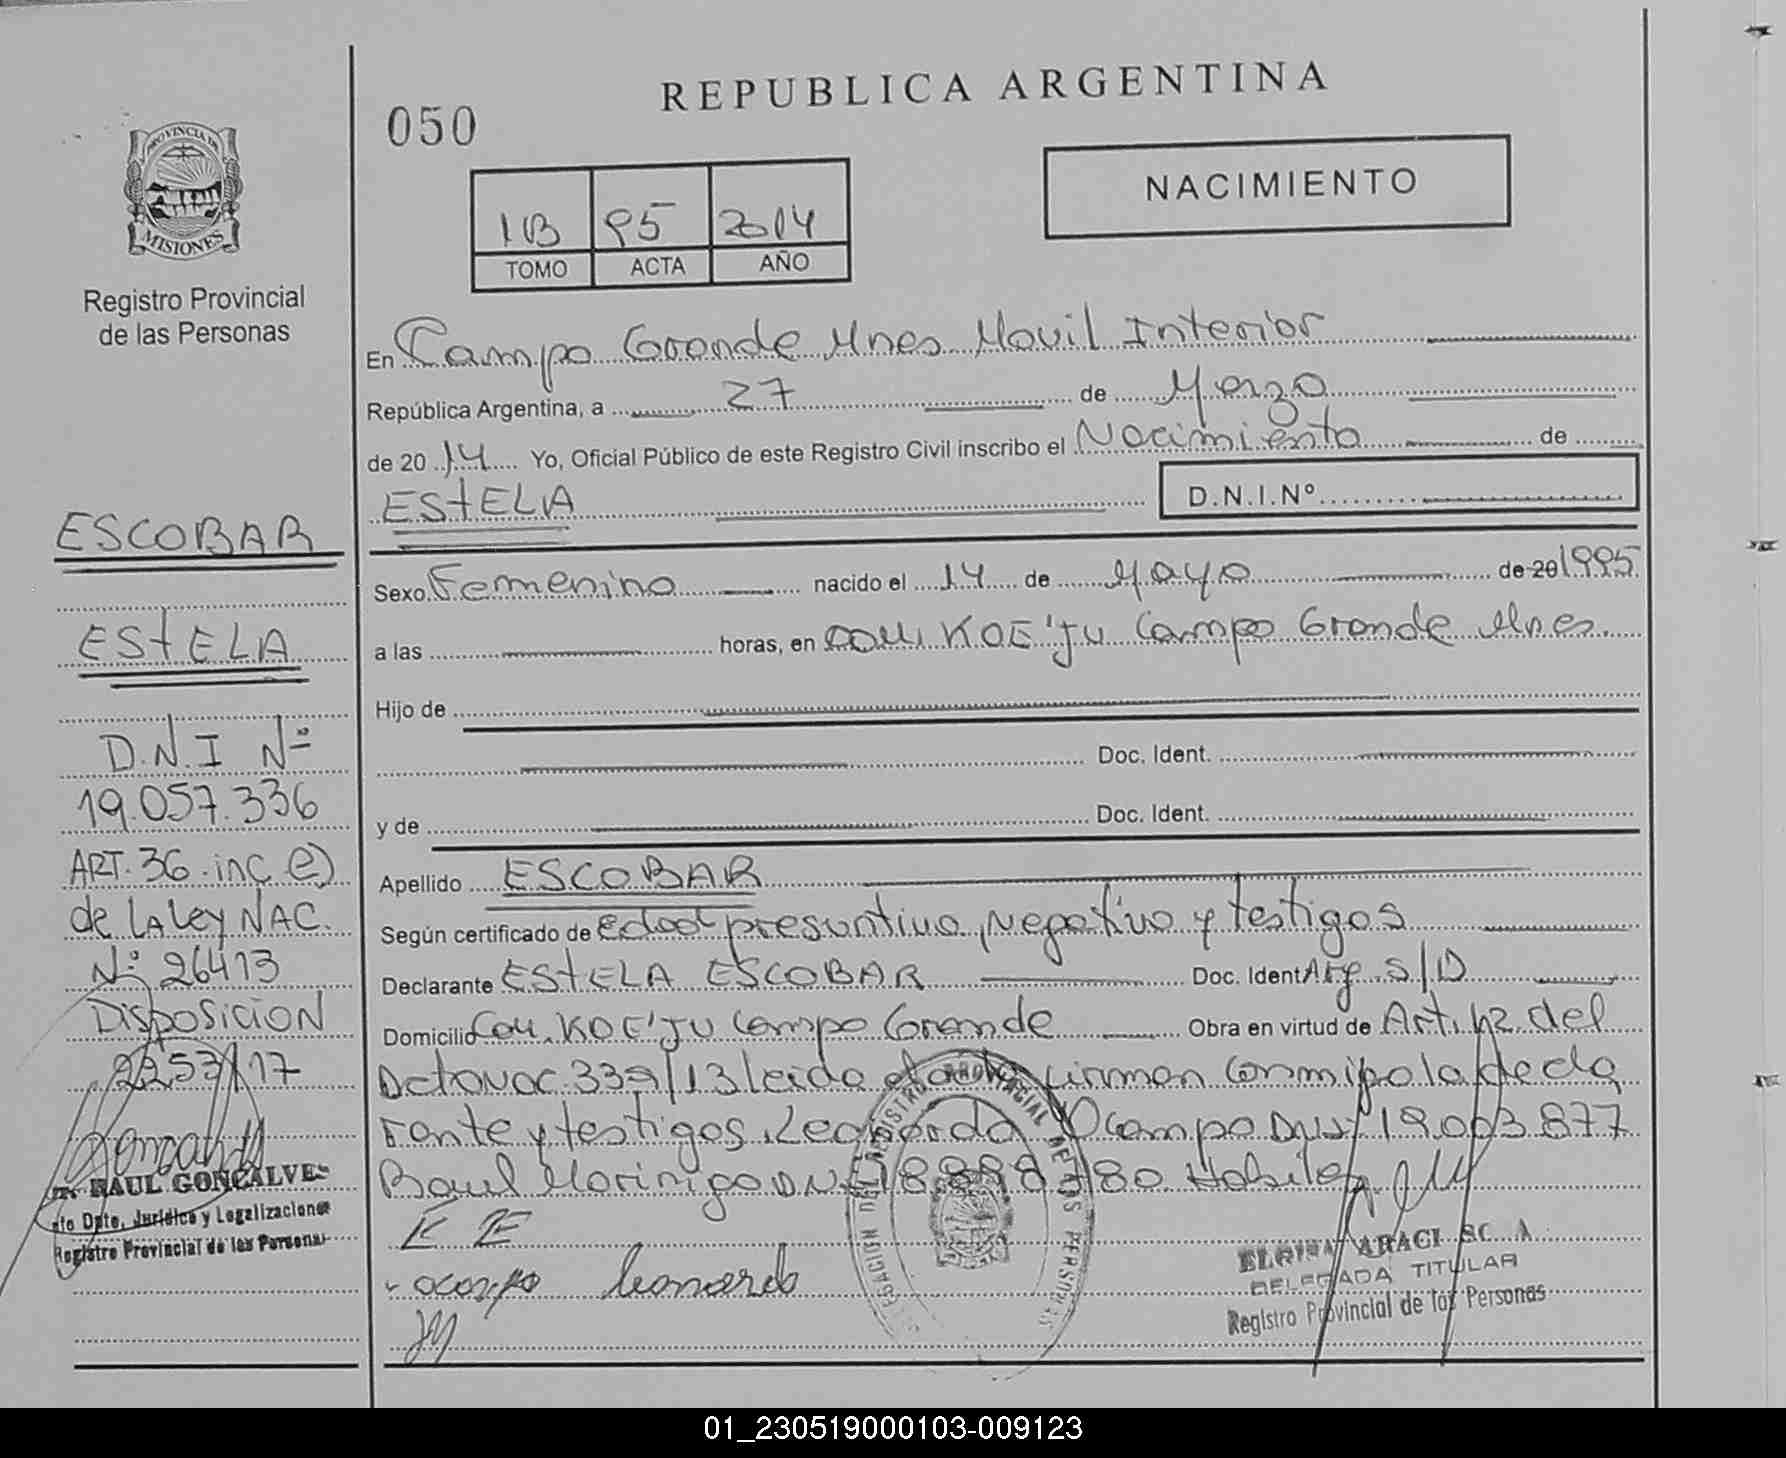 REPUBLICA ARGENTINA
050
NACIMIENTO
1B 95 2014
TOMO ACTA AÑO
PROVINCIA DE
MISIONES
Registro Provincial
de las Personas
ESCOBAR
ESTELA
D.N.I Nº
19.057.336
ART. 36 inc e)
de LA Ley NAC.
Nº 26413
DISPOSICION
2253/17
RAUL GONCALVES
Dpto. Jurídico y Legalizaciones
Registro Provincial de las Personas
En Campo Grande Mnes Movil Interior
República Argentina, a 27 de Marzo
de 2014 Yo, Oficial Público de este Registro Civil inscribo el Nacimiento de
ESTELA D.N.I.Nº
Sexo Femenino nacido el 14 de Mayo de 20 1995
a las horas, en COM. KOE'JU Campo Grande Mnes
Hijo de
Doc. Ident.
y de Doc. Ident.
Apellido ESCOBAR
Según certificado de edad presuntiva, Negativo y testigos
Declarante ESTELA ESCOBAR Doc. Ident Arg S/D
Domicilio Com. KOE'JU Campo Grande Obra en virtud de Art. 1,2 del
339/13 leida el acta firman conmigo la decla
rante y testigos, Leonarda Ocampo DNI 19.003.877
Raul Morinigo DNI 18.898.780 Habiles
E E
ocampo leonarda
DELEGADA TITULAR
Registro Provincial de las Personas
01_230519000103-009123